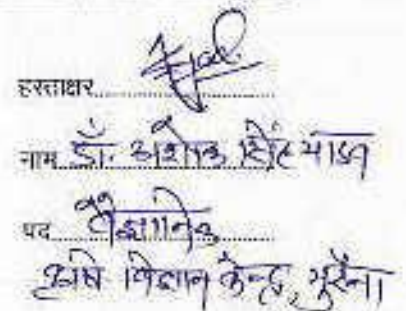 हस्ताक्षर
नाम डॉ. अशोक सिंह यादव
पद वैज्ञानिक
कृषि विज्ञान केन्द्र, मुरैना